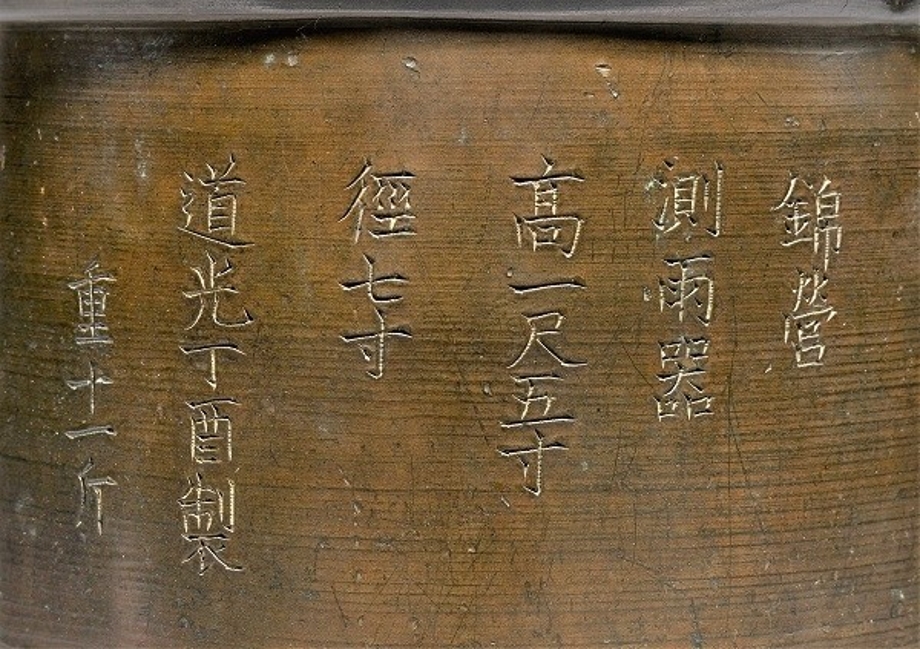 錦營
測雨器
高一尺五寸
徑七寸
道光丁酉製
重十一斤